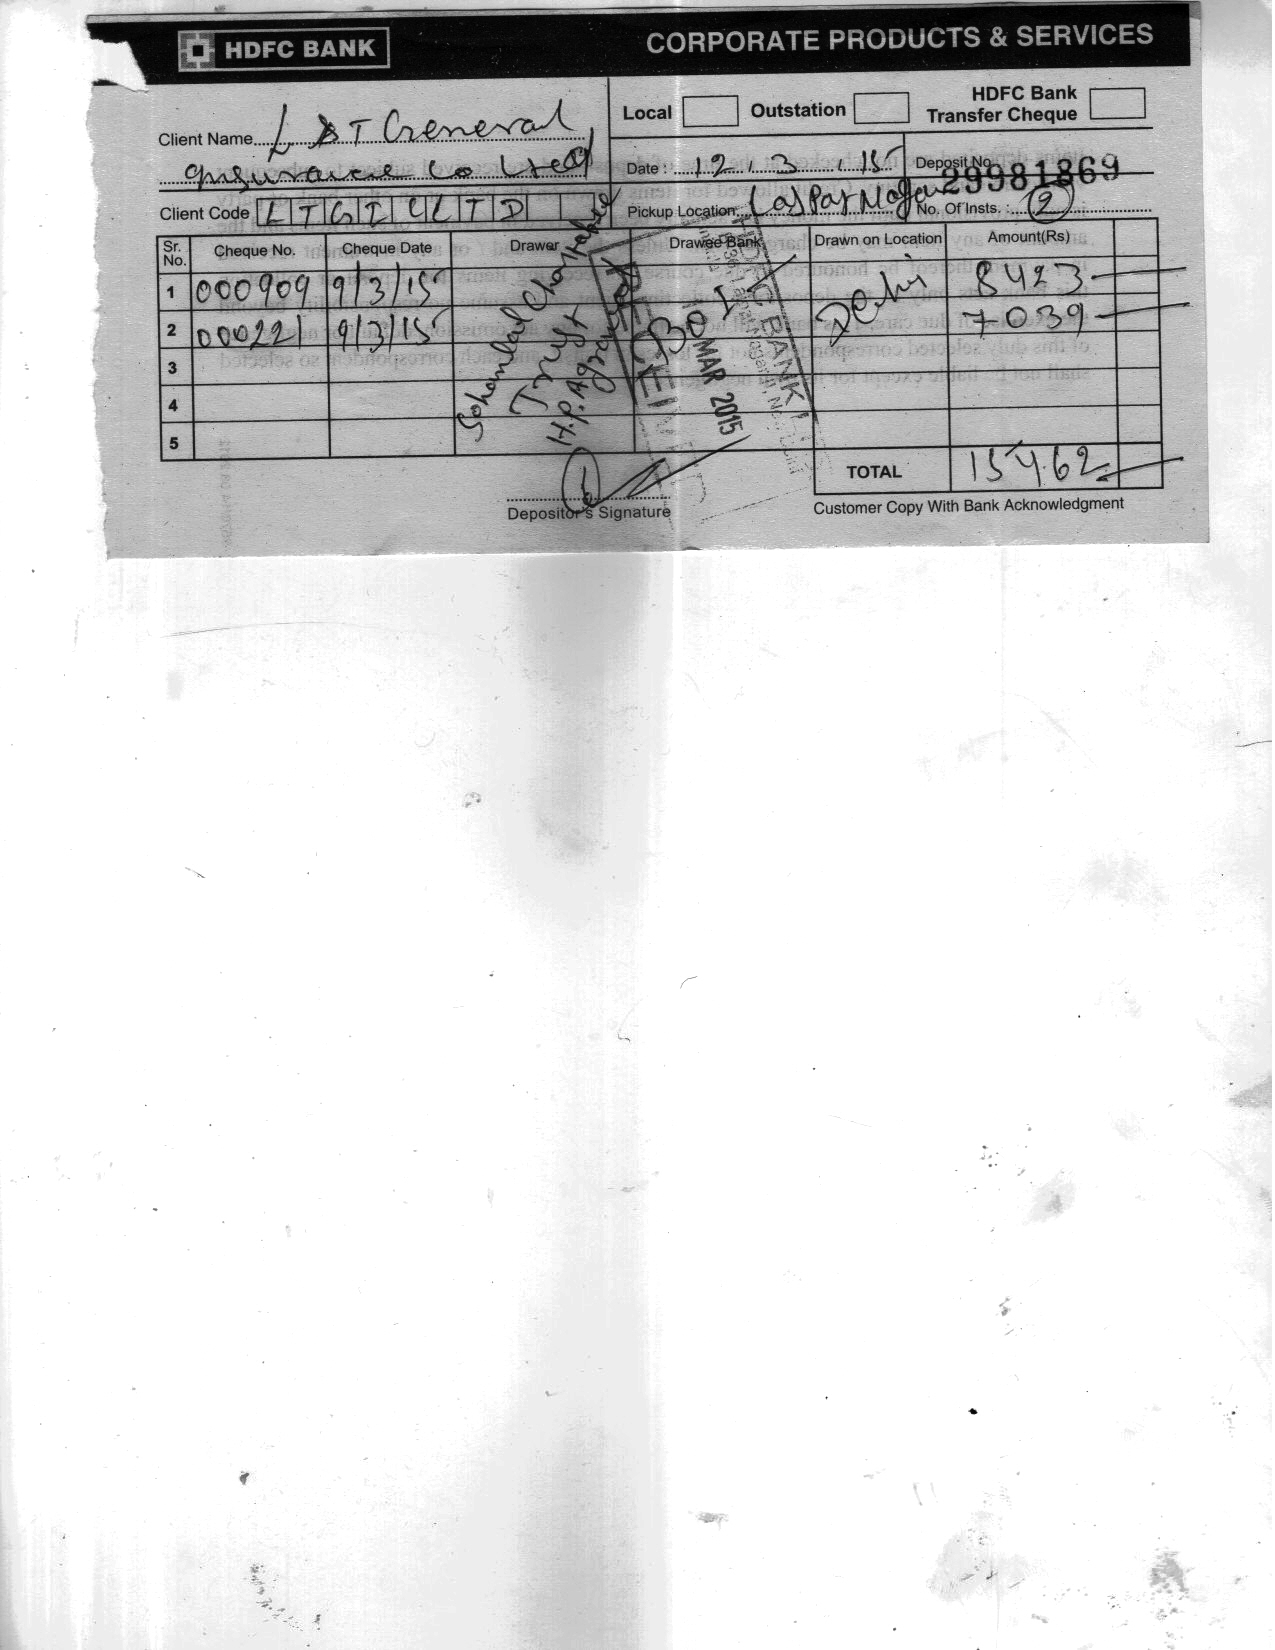 HDFC BANK
CORPORATE PRODUCTS & SERVICES
Client Name L & T General
Insurance Co Ltd
Client Code L T G I C L T D
Local Outstation HDFC Bank Transfer Cheque
Date : 12.3.15 Deposit No. 29981869
Pickup Location LajPat Nagar No. Of Insts. : 2
Sr. No. Cheque No. Cheque Date Drawer Drawee Bank Drawn on Location Amount(Rs)
1 000909 9/3/15 Delhi 8423
2 000221 9/3/15 7039
3
4
5
Sohanlal Charitable
Trust
H.P. Agrawal
BOI
HDFC BANK
RECEIVED
MAR 2015
TOTAL 15462
Depositor's Signature
Customer Copy With Bank Acknowledgment